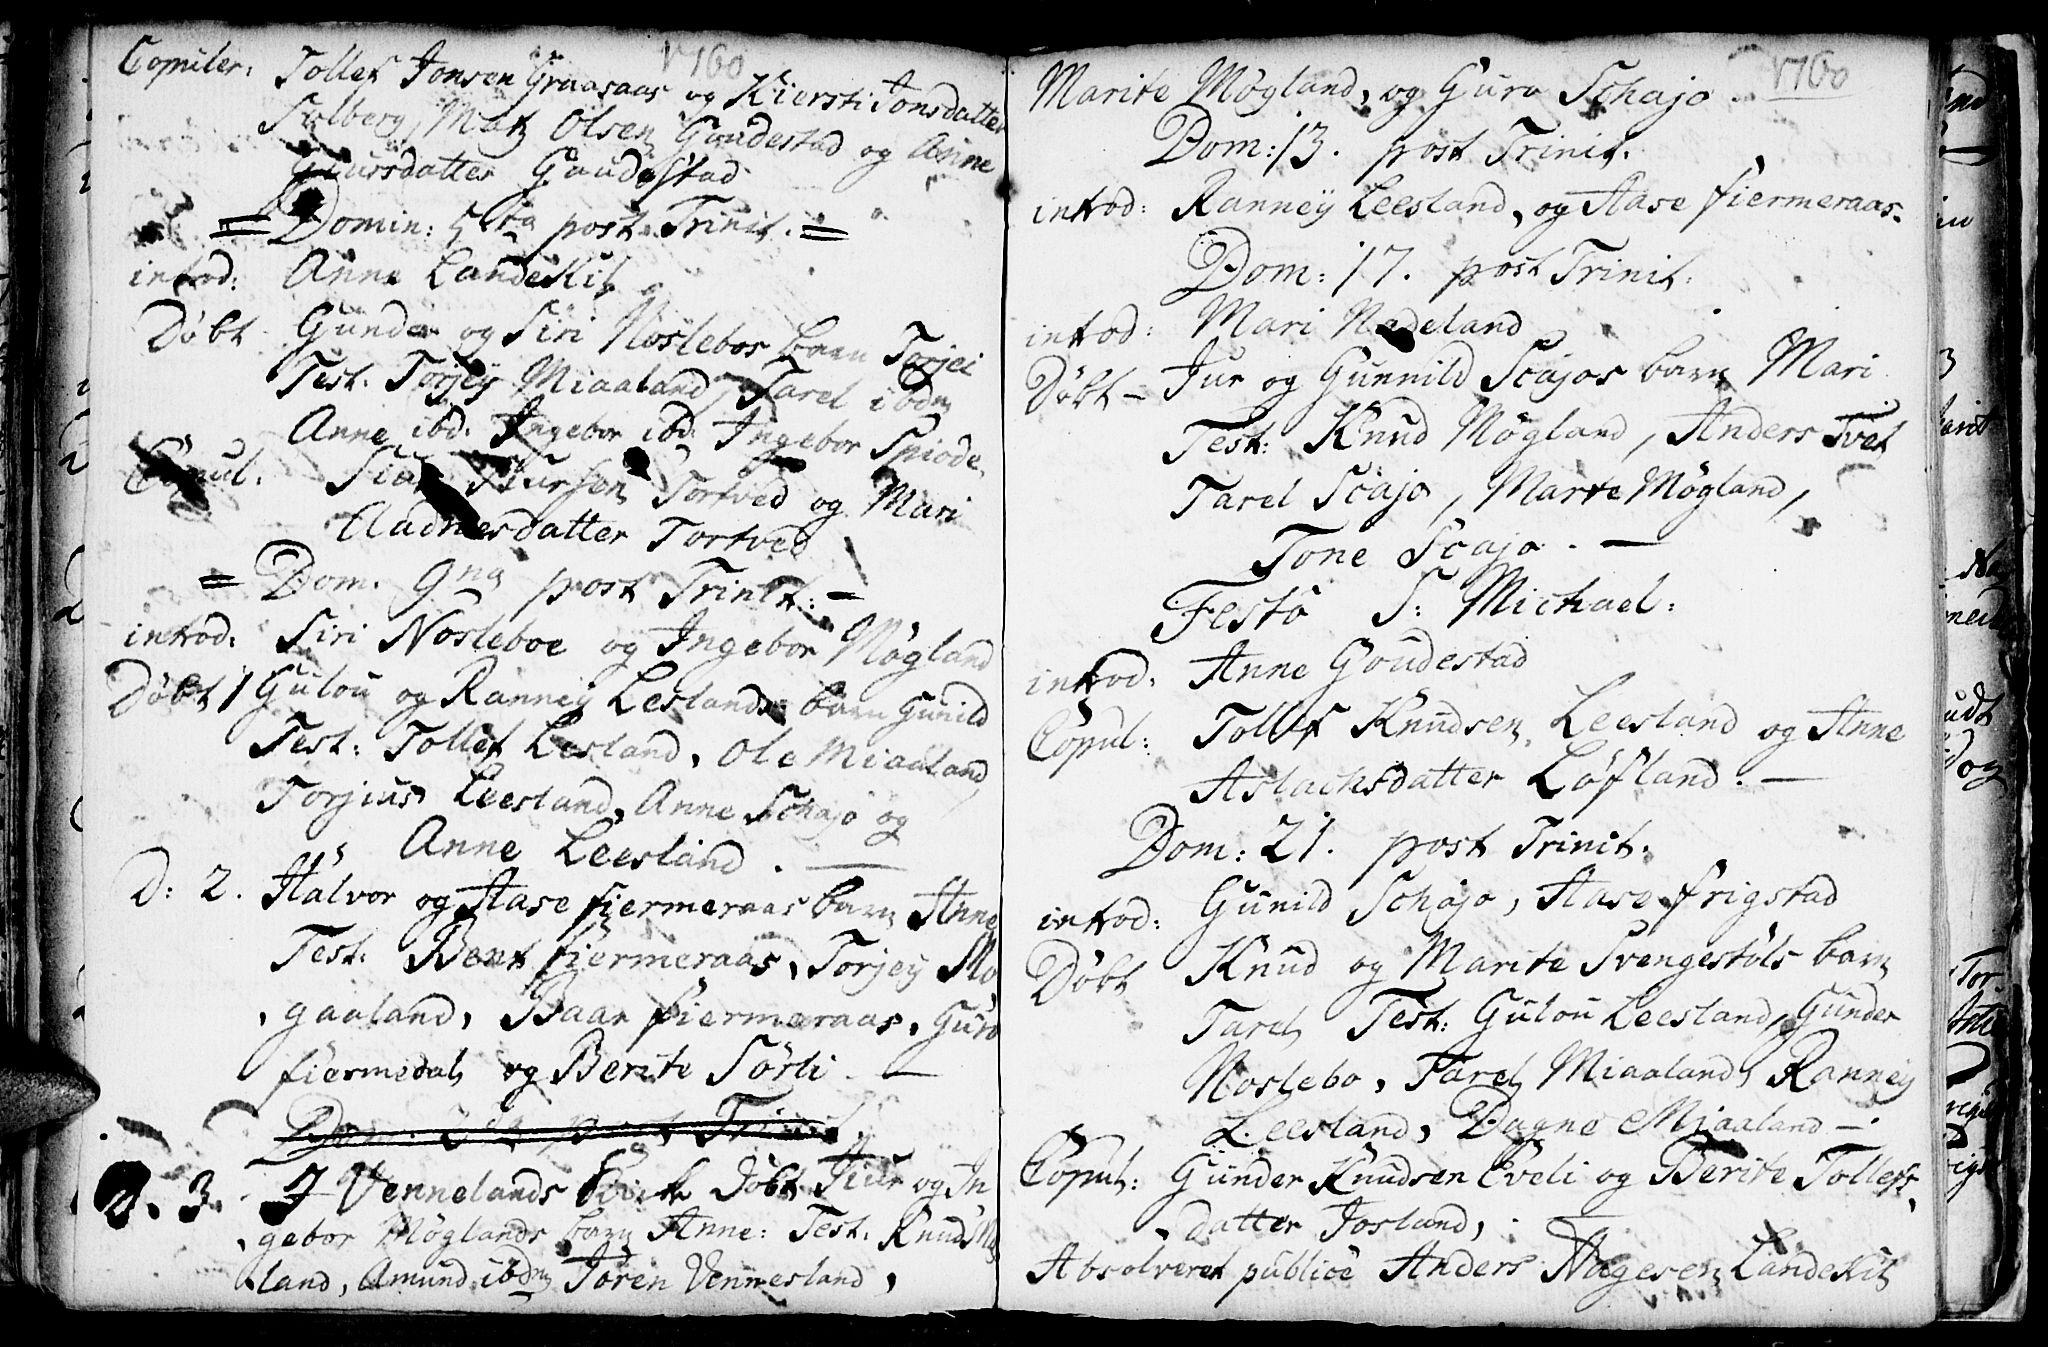 1760
Copuler: Tollef Jonsen Graasaas og Kiersti Jonsdatter
Solberg, Matz Olsen Gaudestad og Anne
Giursdatter Gaudestad
= Domin: 5ta post Trinit. =
introd: Anne Landekil,
Døbt Gunder og Siri Noslebos barn Torjei
Test: Torjey Miaaland, Tarel ibdm
Anne ibd. Ingebor ibd. Ingebor Spiode
Copul. Siur Siursen Tortved og Mari
Aadnesdatter Tortved
= Dom. 9na post Trinit: =
introd: Siri Nosleboe og Ingebor Møgland
Døbt 1 Gulou og Ranney Leslands barn Gunild
Test: Tollef Lesland, Ole Miaaland,
Torjius Leesland, Anne Schajo og
Anne Leesland. —
D: 2. Halvor og Aase fiermeraas barn Anne
Test: Bent fiermeraas, Torjey Mo
gaaland, Baar fiermeraas, Guro
fiermedal og Berite Sørli —
Dom. post Trinit.
D. 3. I Vennelands Kirk døbt Siur og In
gebor Møglands barn Anne: Test: Knud Møg
land, Amund ibdm Jøren Vennesland,
1760
Marite Møgland, og Guro Schajo.
Dom: 13. post Trinit.
introd: Ranney Leesland, og Aase fiermeraas.
Dom: 17. post Trinit:
introd: Mari Nedeland
Døbt — Jur og Gunnild Scajos barn Mari
Test: Knud Møgland, Anders Tvet
Tarel Scajo, Marte Møgland,
Tone Scajo. —
Festo S: Michael:
introd. Anne Goudestad
Copul: Tollef Knudsen Leesland og Anne
Aslachsdatter Løfland. —
Dom: 21. post Trinit.
introd: Gunild Schajo, Aase frigstad
Døbt Knud og Marite Svengestøls barn
Tarel Test: Gulou Leesland, Gunder
Noslebo, Tarel Miaaland, Ranney
Leesland, Dagne Miaaland —
Copul: Gunder Knudsen Eveli og Berite Tollefs
datter Josland,
Absolveret publice Anders Aagesen Landekil